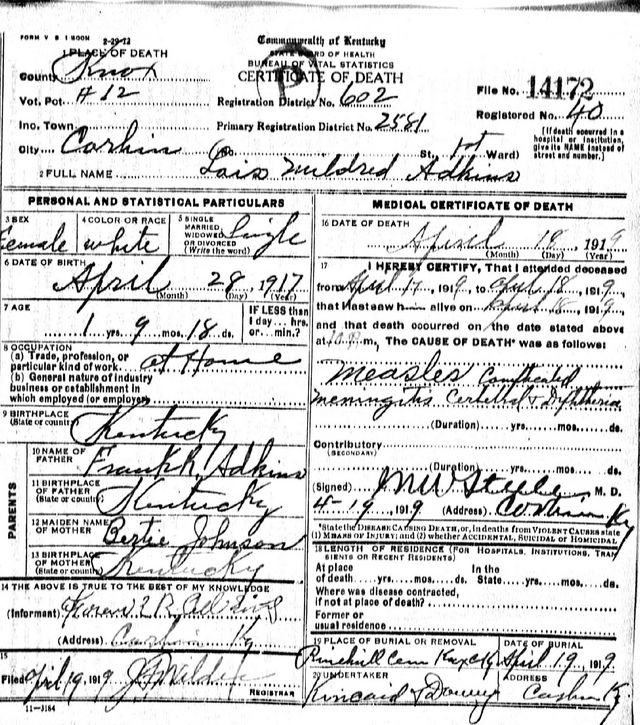 FORM V S 1 500M 2-29-12
Commonwealth of Kentucky
STATE BOARD OF HEALTH
BUREAU OF VITAL STATISTICS
CERTIFICATE OF DEATH
P
1 PLACE OF DEATH
County Knox
Vot. Pct. #12
Inc. Town
City Corbin
Registration District No. 602
Primary Registration District No. 2581
File No. 14172
Registered No. 40
(If death occurred in a hospital or institution, give its NAME instead of street and number.)
St., 1st Ward)
2 FULL NAME Lois Mildred Adkins
PERSONAL AND STATISTICAL PARTICULARS
3 SEX
Female
4 COLOR OR RACE
white
5 SINGLE MARRIED, WIDOWED OR DIVORCED (Write the word)
Single
6 DATE OF BIRTH
April 28, 1917
(Month) (Day) (Year)
7 AGE
1 yrs. 9 mos. 18 ds.
IF LESS than 1 day... hrs. or min.?
8 OCCUPATION
(a) Trade, profession, or particular kind of work at Home
(b) General nature of industry business or establishment in which employed (or employer)
9 BIRTHPLACE
(State or country) Kentucky
PARENTS
10 NAME OF FATHER Frank R. Adkins
11 BIRTHPLACE OF FATHER (State or country) Kentucky
12 MAIDEN NAME OF MOTHER Bertie Johnson
13 BIRTHPLACE OF MOTHER (State or country) Kentucky
14 THE ABOVE IS TRUE TO THE BEST OF MY KNOWLEDGE
(Informant) R. Adkins
(Address) Corbin Ky
15
Filed April 19 1919
REGISTRAR
11-3184
MEDICAL CERTIFICATE OF DEATH
16 DATE OF DEATH
April 18, 1919
(Month) (Day) (Year)
17 I HEREBY CERTIFY, That I attended deceased
from April 17, 1919, to April 18, 1919,
that I last saw h alive on April 18, 1919,
and that death occurred on the date stated above
at m, The CAUSE OF DEATH* was as follows:
Measles Complicated
Meningitis Cerebral & Diphtheria
(Duration) yrs. mos. ds.
Contributory
(SECONDARY)
(Duration) yrs. mos. ds.
(Signed) M. D.
4-19, 1919 (Address) Corbin Ky
*State the DISEASE CAUSING DEATH, or, in deaths from VIOLENT CAUSES state (1) MEANS OF INJURY; and (2) whether ACCIDENTAL, SUICIDAL or HOMICIDAL
18 LENGTH OF RESIDENCE (FOR HOSPITALS, INSTITUTIONS, TRANSIENTS OR RECENT RESIDENTS)
At place of death yrs. mos. ds. In the State yrs. mos. ds.
Where was disease contracted, if not at place of death?
Former or usual residence
19 PLACE OF BURIAL OR REMOVAL
Pinehill Cem
DATE OF BURIAL
April 19, 1919
20 UNDERTAKER
Kincaid &
ADDRESS
Corbin Ky